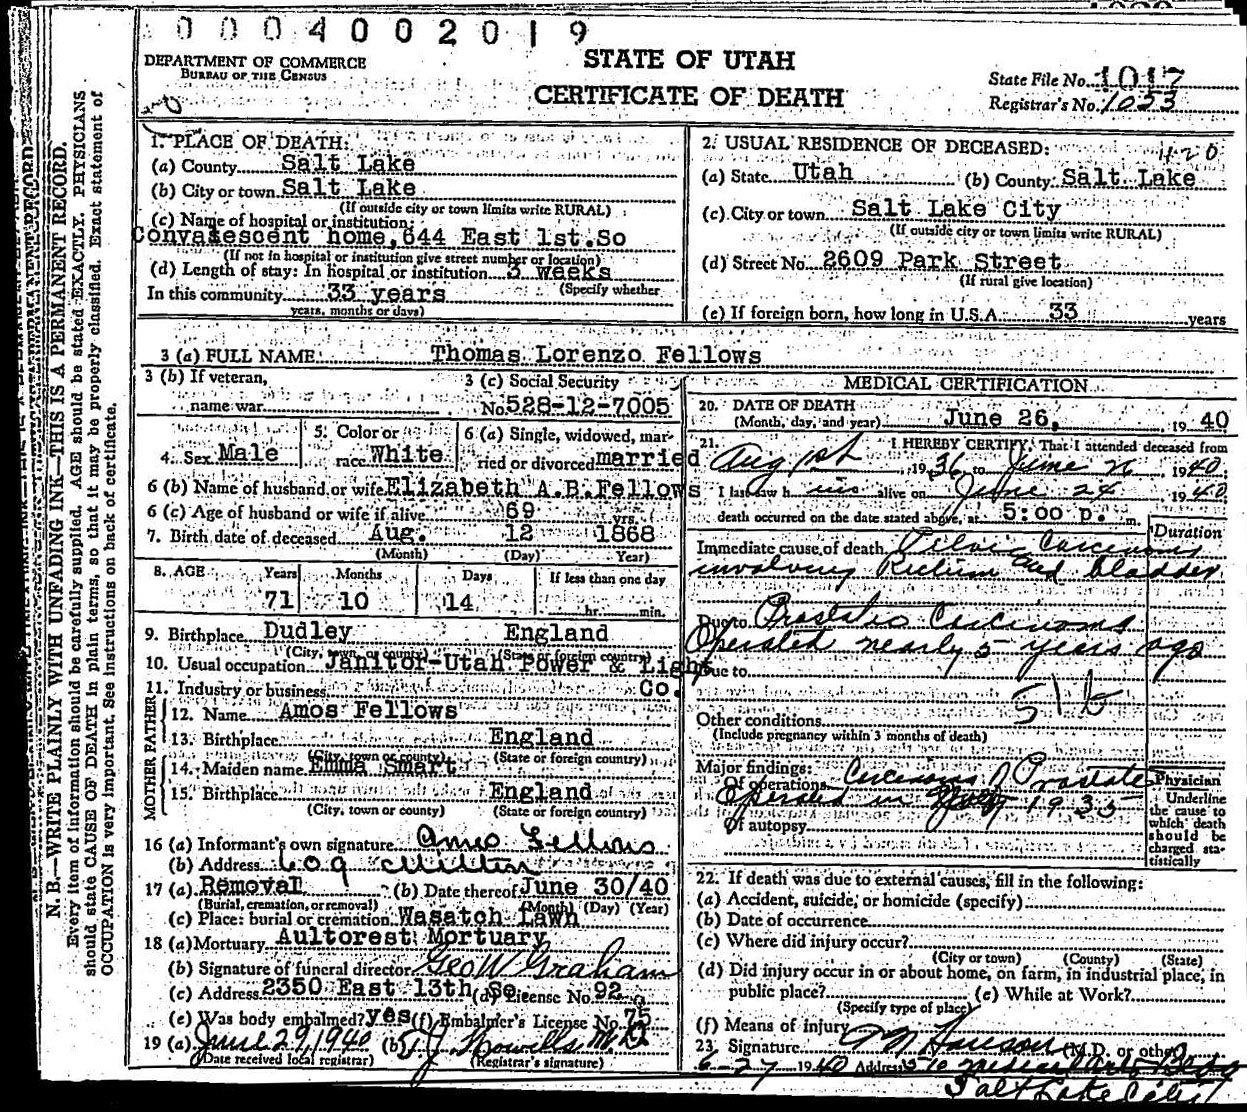 0004002019
DEPARTMENT OF COMMERCE
BUREAU OF THE CENSUS
STATE OF UTAH
CERTIFICATE OF DEATH
State File No. 1017
Registrar's No. 1053
N. B.—WRITE PLAINLY WITH UNFADING INK—THIS IS A PERMANENT RECORD.
Every item of information should be carefully supplied. AGE should be stated EXACTLY. PHYSICIANS
should state CAUSE OF DEATH in plain terms, so that it may be properly classified. Exact statement of
OCCUPATION is very important. See instructions on back of certificate.
1. PLACE OF DEATH:
(a) County Salt Lake
(b) City or town Salt Lake
(If outside city or town limits write RURAL)
(c) Name of hospital or institution:
Convalescent home, 644 East 1st. So
(If not in hospital or institution give street number or location)
(d) Length of stay: In hospital or institution 3 weeks
(Specify whether
In this community 33 years
years, months or days)
2. USUAL RESIDENCE OF DECEASED: 420
(a) State Utah (b) County Salt Lake
(c) City or town Salt Lake City
(If outside city or town limits write RURAL)
(d) Street No. 2609 Park Street
(If rural give location)
(e) If foreign born, how long in U.S.A. 33 years
3 (a) FULL NAME Thomas Lorenzo Fellows
3 (b) If veteran,
name war
3 (c) Social Security
No. 528-12-7005
4. Sex Male
5. Color or
race White
6 (a) Single, widowed, mar-
ried or divorced married
6 (b) Name of husband or wife Elizabeth A.B. Fellows
6 (c) Age of husband or wife if alive 69 yrs.
7. Birth date of deceased Aug. 12 1868
(Month) (Day) Year)
8. AGE Years Months Days If less than one day
71 10 14 hr. min.
9. Birthplace Dudley England
(City, town, or county) (State or foreign country)
10. Usual occupation Janitor-Utah Power & Light
Co.
11. Industry or business
FATHER
12. Name Amos Fellows
13. Birthplace England
(City, town or county) (State or foreign country)
MOTHER
14. Maiden name Emma Smart
15. Birthplace England
(City, town or county) (State or foreign country)
16 (a) Informant's own signature Amo Fellows
(b) Address 609 Milton
17 (a) Removal (b) Date thereof June 30/40
(Burial, cremation, or removal) (Month) (Day) (Year)
(c) Place: burial or cremation Wasatch Lawn
18 (a) Mortuary Aultorest Mortuary
(b) Signature of funeral director Geo W Graham
(c) Address 2350 East 13th So. (d) License No. 92
(e) Was body embalmed? yes (f) Embalmer's License No. 75
19 (a) June 29, 1940 (b) Howells M.D.
(Date received local registrar) (Registrar's signature)
MEDICAL CERTIFICATION
20. DATE OF DEATH
(Month, day, and year) June 26, 1940
21. I HEREBY CERTIFY, That I attended deceased from
Aug 1st, 1936 to June 26 1940
I last saw him alive on June 24, 1940
death occurred on the date stated above, at 5:00 p. m.
Duration
Immediate cause of death Pelvic Carcinoma
involving Rectum and bladder
Due to Prostatic Carcinoma
Operated nearly 5 years ago
Due to
51b
Other conditions
(Include pregnancy within 3 months of death)
Major findings:
Of operations Carcinoma of Prostate
Operated in 1935
Of autopsy
Physician
Underline
the cause to
which death
should be
charged sta-
tistically
22. If death was due to external causes, fill in the following:
(a) Accident, suicide, or homicide (specify)
(b) Date of occurrence
(c) Where did injury occur?
(City or town) (County) (State)
(d) Did injury occur in or about home, on farm, in industrial place, in
public place? (e) While at Work?
(Specify type of place)
(f) Means of injury
23. Signature (M.D. or other)
6-27 1940 Address 510 Medical Arts Bldg
Salt Lake City